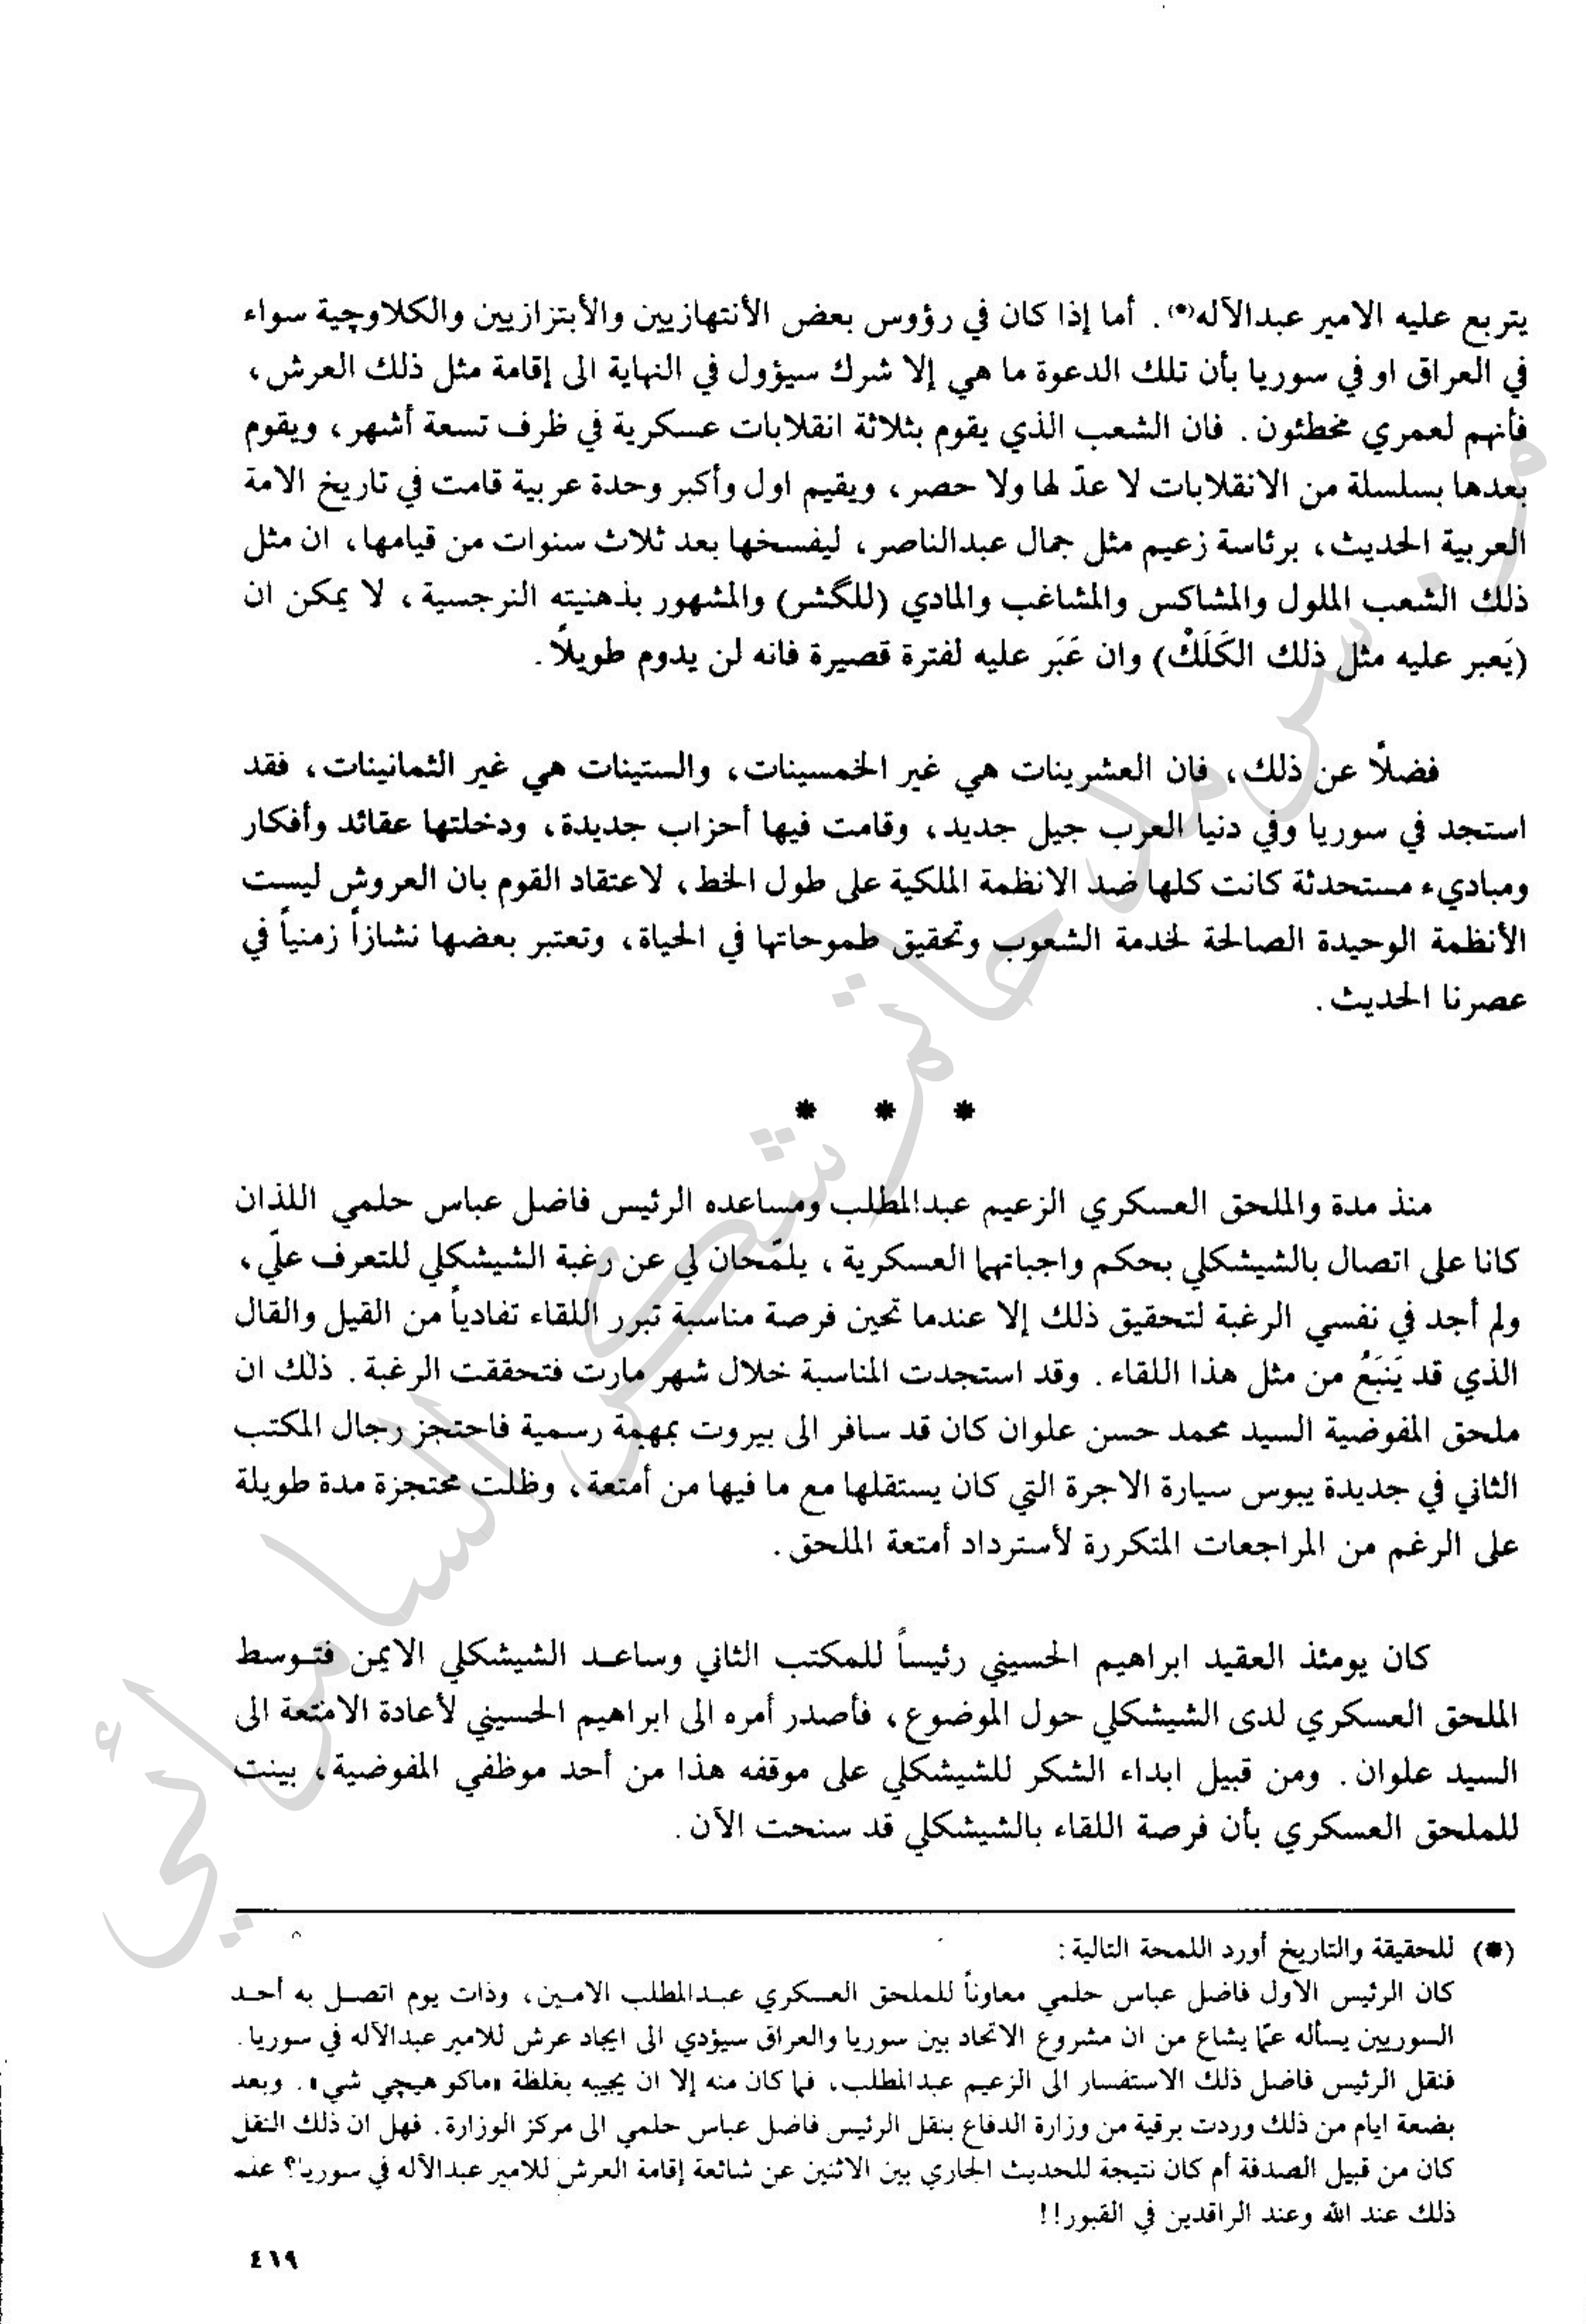 يتربع عليه الامير عبدالآله(*). أما إذا كان في رؤوس بعض الأنتهازيين والأبتزازيين والكلاوچية سواء
في العراق او في سوريا بأن تلك الدعوة ما هي إلا شرك سيؤول في النهاية الى إقامة مثل ذلك العرش،
فأنهم لعمري مخطئون. فان الشعب الذي يقوم بثلاثة انقلابات عسكرية في ظرف تسعة أشهر، ويقوم
بعدها بسلسلة من الانقلابات لا عدّ لها ولا حصر، ويقيم اول وأكبر وحدة عربية قامت في تاريخ الامة
العربية الحديث، برئاسة زعيم مثل جمال عبدالناصر، ليفسخها بعد ثلاث سنوات من قيامها، ان مثل
ذلك الشعب الملول والمشاكس والمشاغب والمادي (للگشر) والمشهور بذهنيته النرجسية، لا يمكن ان
(يَعبر عليه مثل ذلك الكَلَكْ) وان عَبَر عليه لفترة قصيرة فانه لن يدوم طويلاً.
فضلاً عن ذلك، فان العشرينات هي غير الخمسينات، والستينات هي غير الثمانينات، فقد
استجد في سوريا وفي دنيا العرب جيل جديد، وقامت فيها أحزاب جديدة، ودخلتها عقائد وأفكار
ومباديء مستحدثة كانت كلها ضد الانظمة الملكية على طول الخط، لاعتقاد القوم بان العروش ليست
الأنظمة الوحيدة الصالحة لخدمة الشعوب وتحقيق طموحاتها في الحياة، وتعتبر بعضها نشازاً زمنياً في
عصرنا الحديث.
* * *
منذ مدة والملحق العسكري الزعيم عبدالمطلب ومساعده الرئيس فاضل عباس حلمي اللذان
كانا على اتصال بالشيشكلي بحكم واجباتهما العسكرية، يلمّحان لي عن رغبة الشيشكلي للتعرف عليّ،
ولم أجد في نفسي الرغبة لتحقيق ذلك إلا عندما تحين فرصة مناسبة تبرر اللقاء تفادياً من القيل والقال
الذي قد يَنبَعُ من مثل هذا اللقاء. وقد استجدت المناسبة خلال شهر مارت فتحققت الرغبة. ذلك ان
ملحق المفوضية السيد محمد حسن علوان كان قد سافر الى بيروت بمهمة رسمية فاحتجز رجال المكتب
الثاني في جديدة يبوس سيارة الاجرة التي كان يستقلها مع ما فيها من أمتعة، وظلت محتجزة مدة طويلة
على الرغم من المراجعات المتكررة لأسترداد أمتعة الملحق.
كان يومئذ العقيد ابراهيم الحسيني رئيساً للمكتب الثاني وساعد الشيشكلي الايمن فتوسط
الملحق العسكري لدى الشيشكلي حول الموضوع، فأصدر أمره الى ابراهيم الحسيني لأعادة الامتعة الى
السيد علوان. ومن قبيل ابداء الشكر للشيشكلي على موقفه هذا من أحد موظفي المفوضية، بينت
للملحق العسكري بأن فرصة اللقاء بالشيشكلي قد سنحت الآن.
(*) للحقيقة والتاريخ أورد اللمحة التالية:
كان الرئيس الاول فاضل عباس حلمي معاوناً للملحق العسكري عبدالمطلب الامين، وذات يوم اتصل به أحد
السوريين يسأله عمّا يشاع من ان مشروع الاتحاد بين سوريا والعراق سيؤدي الى ايجاد عرش للامير عبدالآله في سوريا.
فنقل الرئيس فاضل ذلك الاستفسار الى الزعيم عبدالمطلب، فما كان منه إلا ان يجيبه بغلظة «ماكو هيچي شي». وبعد
بضعة ايام من ذلك وردت برقية من وزارة الدفاع بنقل الرئيس فاضل عباس حلمي الى مركز الوزارة. فهل ان ذلك النقل
كان من قبيل الصدفة أم كان نتيجة للحديث الجاري بين الاثنين عن شائعة إقامة العرش للامير عبدالآله في سوريا؟ علم
ذلك عند الله وعند الراقدين في القبور!!
٤٦٩